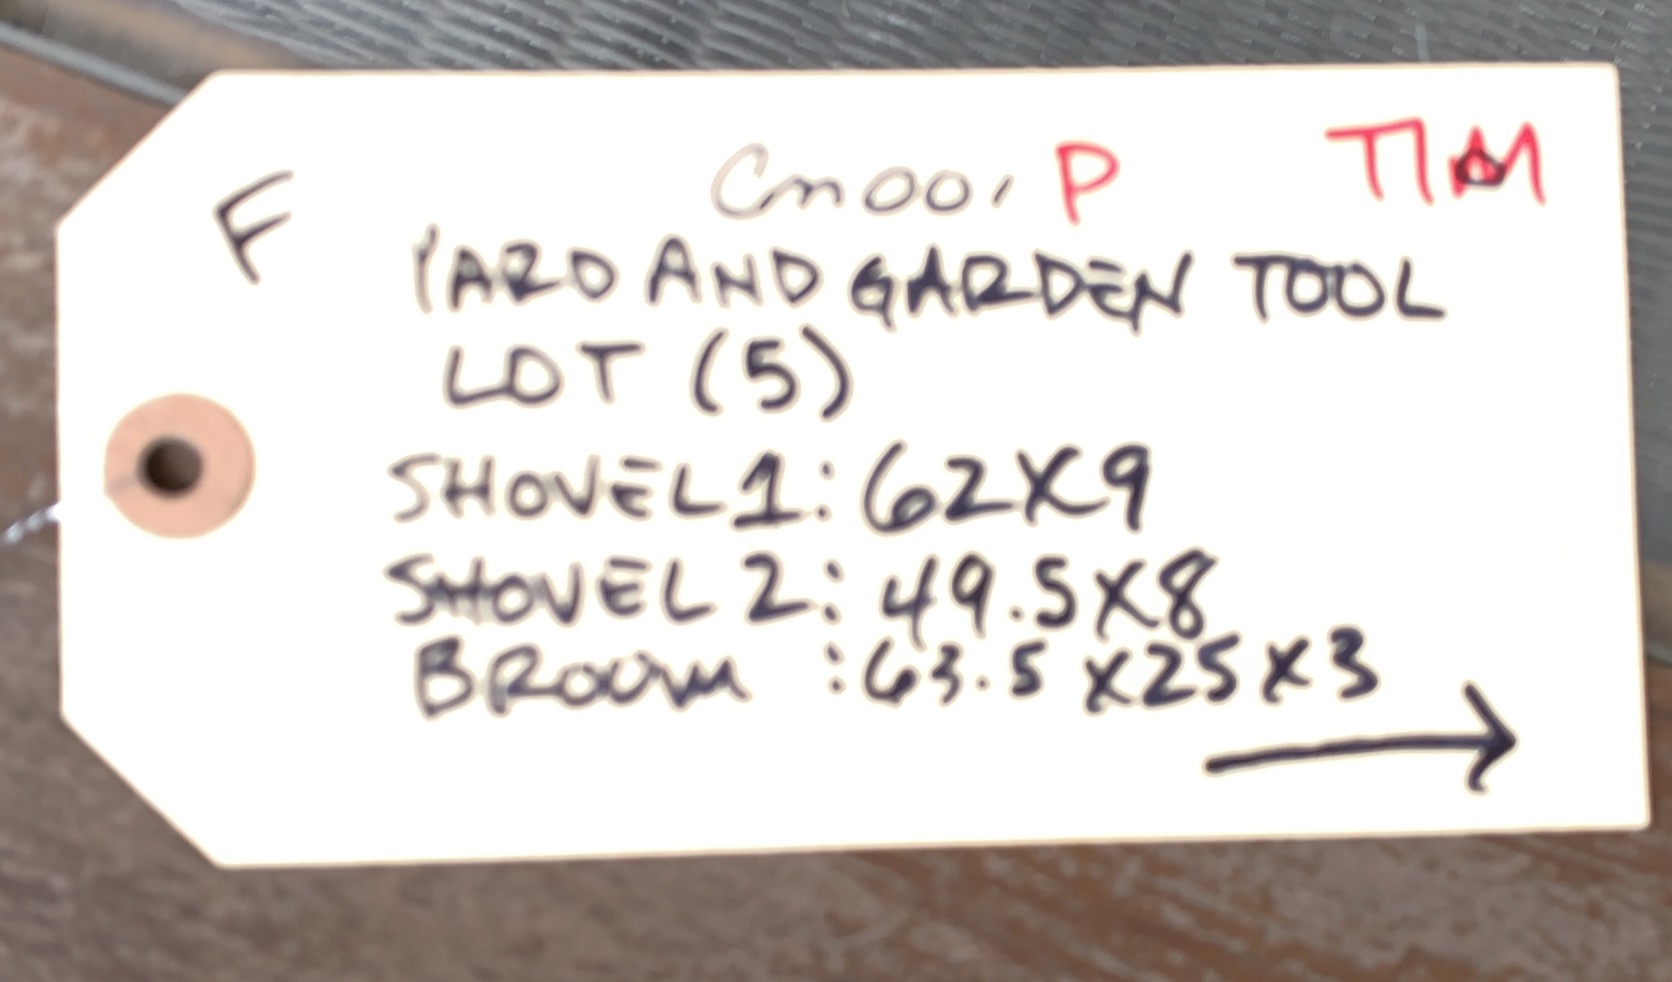 F
Cm001 P TIM
YARD AND GARDEN TOOL
LOT (5)
SHOVEL 1: 62X9
SHOVEL 2: 49.5X8
BROOM : 63.5 X25 X3
→